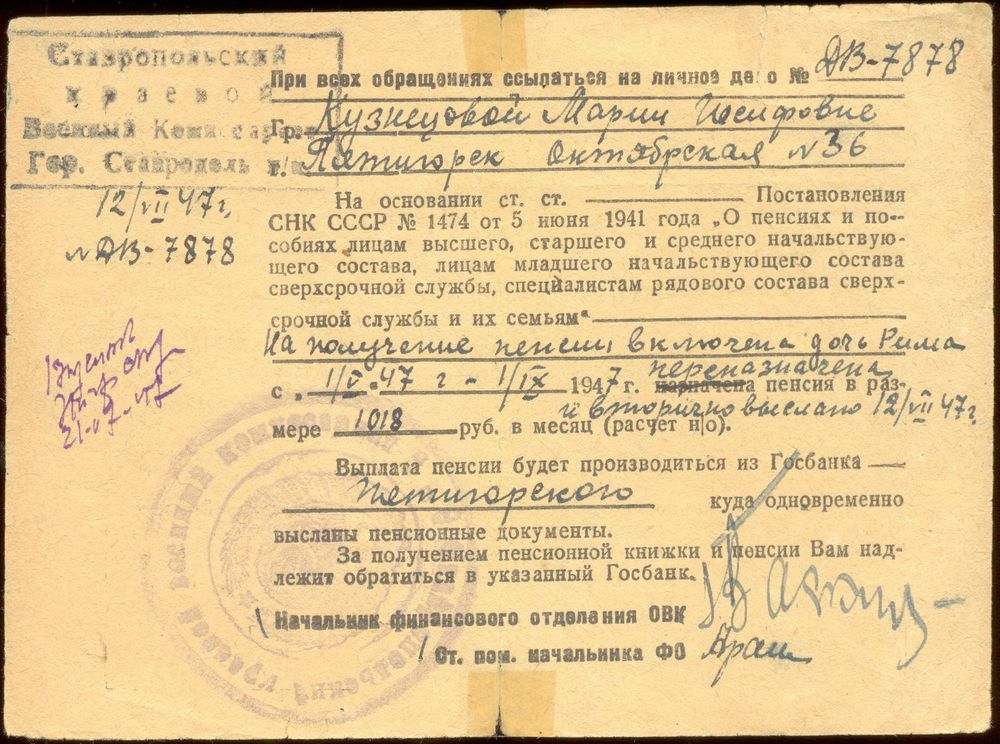 Ставропольский
краевой
Военный Комиссариат
Гор. Ставрополь
12/VII 47 г,
№ДВ-7878
При всех обращениях ссылаться на личное дело № ДВ-7878
Гр. Кузнецовой Марии Иосифовне
г. Пятигорск Октябрская №36
На основании ст. ст. Постановления
СНК СССР № 1474 от 5 июня 1941 года „О пенсиях и по-
собиях лицам высшего, старшего и среднего начальствую-
щего состава, лицам младшего начальствующего состава
сверхсрочной службы, специалистам рядового состава сверх-
срочной службы и их семьям"
На получение пенсии включена дочь Рима
переназначена
с „ 1/V-47 г - 1/IX 1947 г. назначена пенсия в раз-
и вторично выслано 12/VII 47 г.
мере 1018 руб. в месяц (расчет н/о).
Выплата пенсии будет производиться из Госбанка
Пятигорского куда одновременно
высланы пенсионные документы.
За получением пенсионной книжки и пенсии Вам над-
лежит обратиться в указанный Госбанк.
Начальник финансового отделения ОВК
Ст. пом. начальника ФО